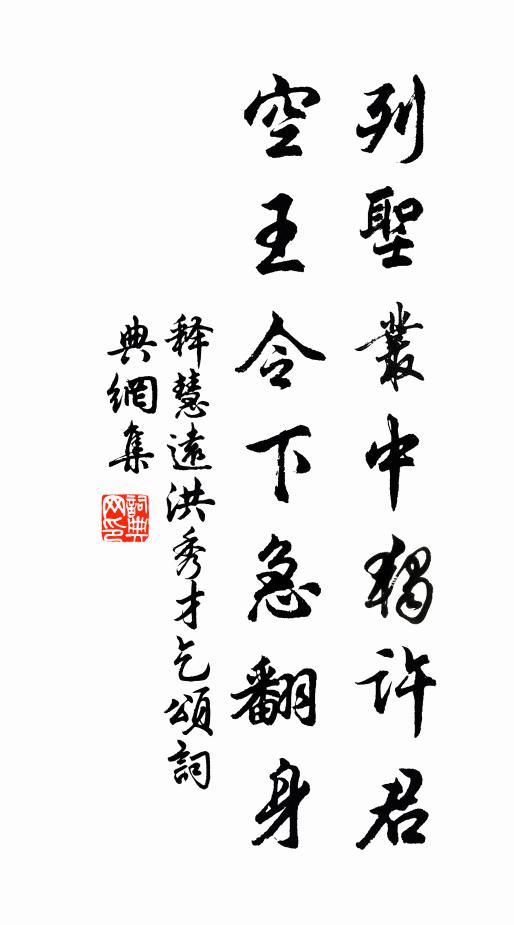 列聖叢中獨許君
空王令下急翻身
释慧遠洪秀才乞頌詞
典網集
詞典网印